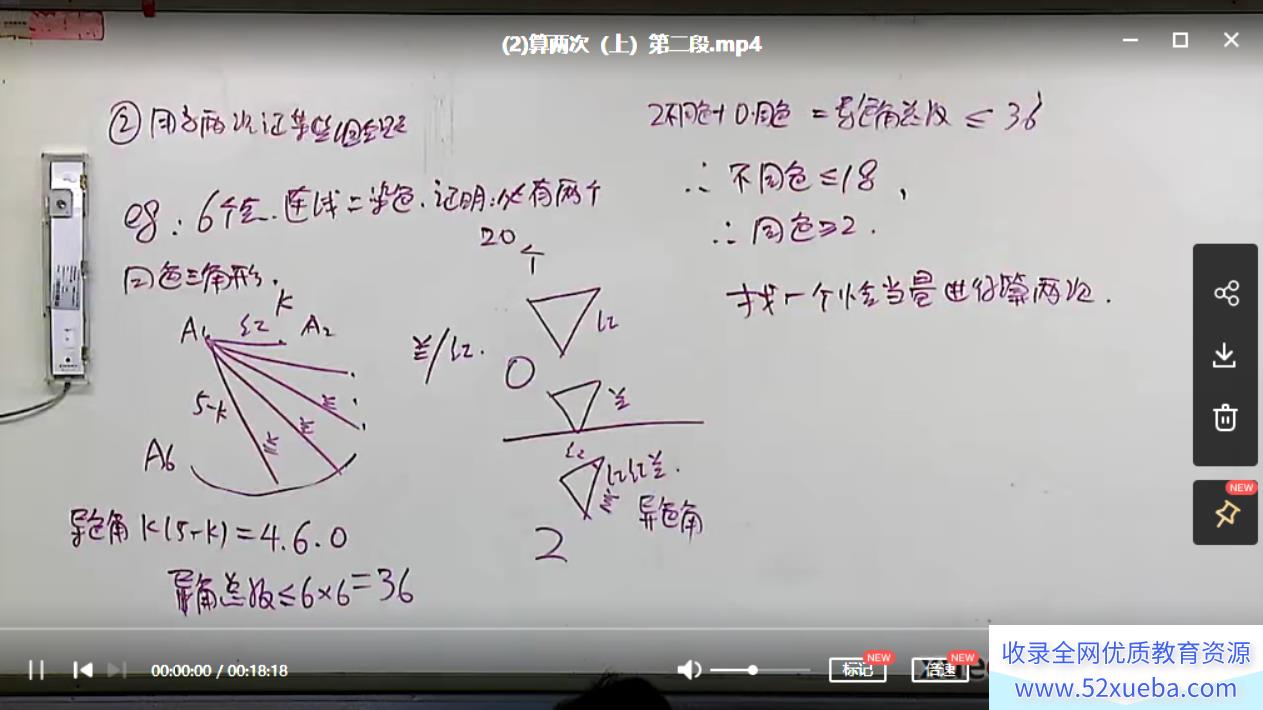 (2)算两次（上）第二段.mp4
② 用算两次证某些组合题
eg：6个点.连线二染色.证明:必有两个
同色三角形.
20个
A₁ 红 K A₂
5-K
蓝
蓝
蓝
A₆
蓝/红.
红
0
蓝
红
红红蓝.
蓝
异色角
2
异色角 K(5-K)=4.6.0
异角总数≤6×6=36
2不同色+0·同色 = 异色角总数 ≤ 36
∴ 不同色≤18，
∴ 同色≥2.
找一个恰当量进行算两次.
NEW
00:00:00 / 00:18:18
标记
NEW
倍速
NEW
收录全网优质教育资源
www.52xueba.com